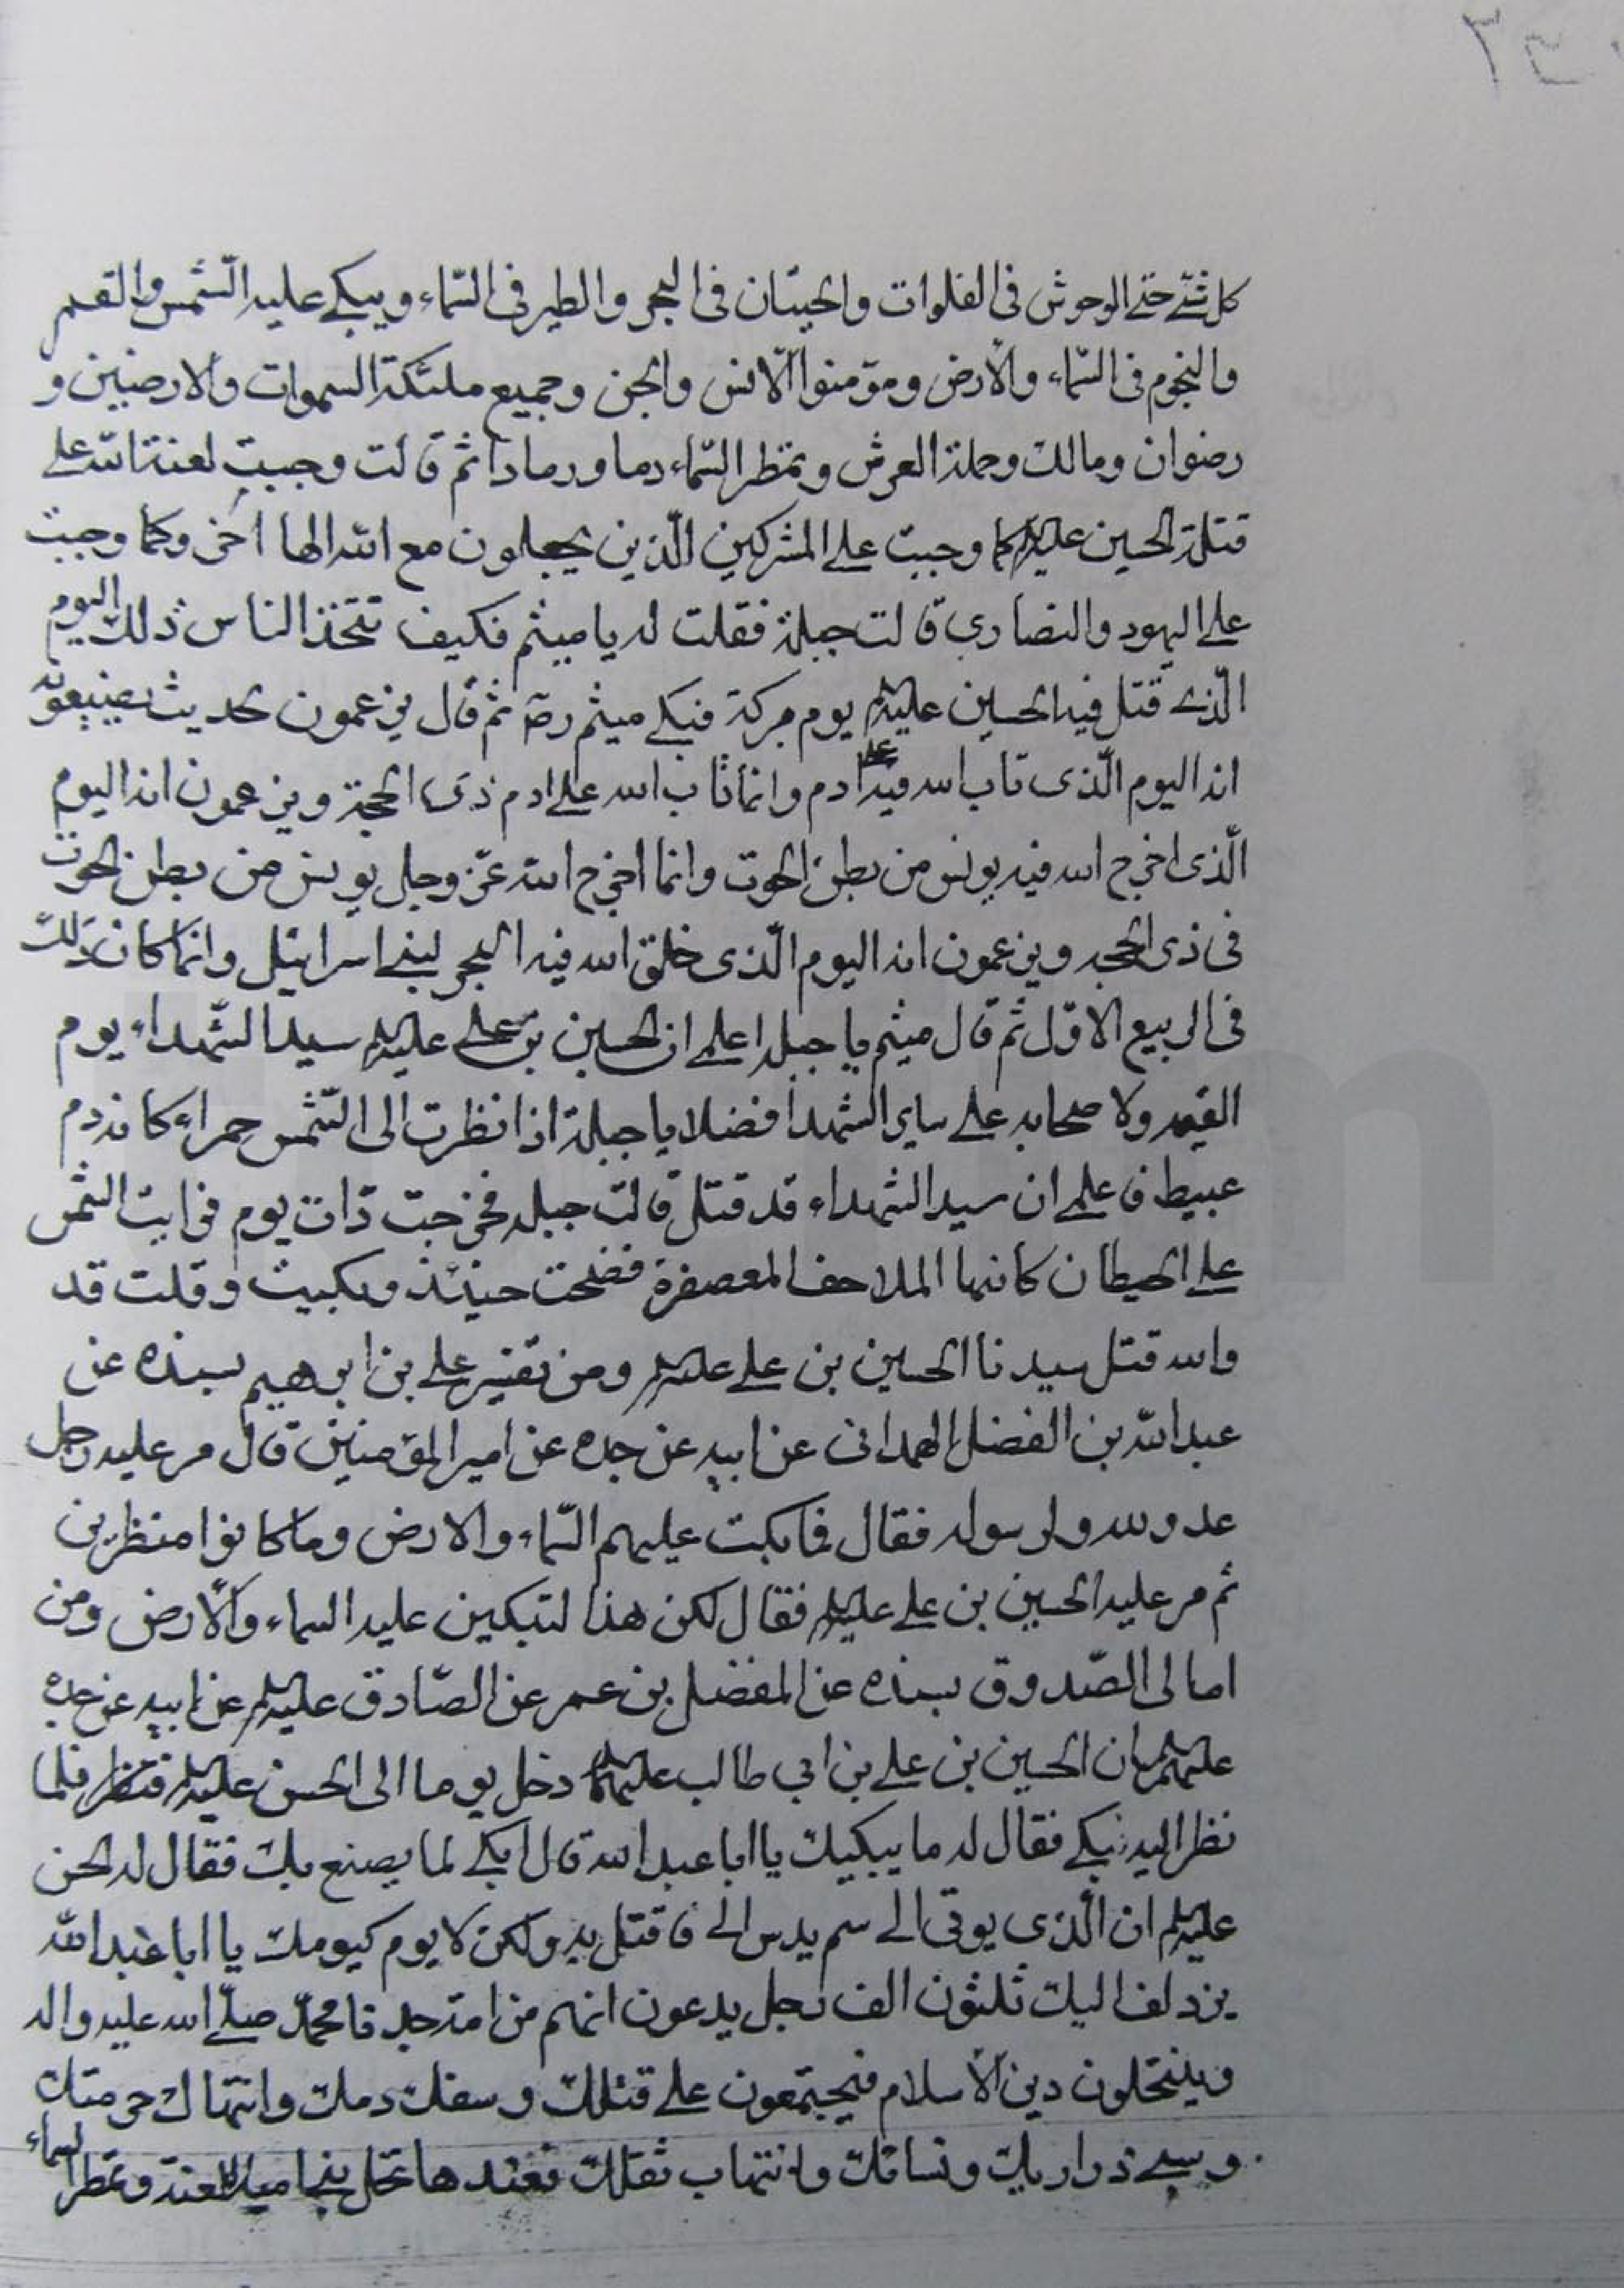 كل شئ حتى الوحوش فى الفلوات والحيتان فى البحر والطير فى السّماء ويبكے عليه الشّمس والقمر
والنجوم فى السّماء والأرض ومؤمنوا الانس والجن وجميع ملئكة السموات والارضيين و
رضوان ومالك وحملة العرش وتمطر السّماء دما ورمادا ثم قالت وجبت لعنة الله على
قتلة الحسين عليه كما وجبت على المشركين الّذين يجعلون مع الله الها اخر وكما وجبت
على اليهود والنصارى قالت جبلة فقلت له يا ميثم فكيف تتخذ الناس ذلك اليوم
الّذے قتل فيه الحسين عليه‌السلم يوم بركة فبكے ميثم رضه ثم قال يزعمون لحديث يضيعونه
انه اليوم الّذى تاب الله فيه على ادم وانما تاب الله على ادم ذى الحجة ويزعمون انه اليوم
الّذى اخرج الله فيه يونس من بطن الحوت وانما اخرج الله عزّ وجل يونس من بطن الحوت
فى ذى الحجه ويزعمون انه اليوم الّذى خلق الله فيه البحر لبنے اسرائيل وانما كان ذلك
فى الربيع الاوّل ثم قال ميثم يا جبله اعلمے ان الحسين بن على عليه‌السلم سيد الشّهداء يوم
القيمه ولا صحابه على ساير الشهدا فضلا يا جبلة اذا نظرت الى الشّمس حمراء كانه دم
عبيط فاعلمے ان سيد الشهداء قد قتل قالت جبله فخرجت ذات يوم فرايت الشمس
على الحيطان كانها الملاحف المعصفرة فضحت حينئذ وبكيت وقلت قد
والله قتل سيدنا الحسين بن على عليه‌السلم ومن تفسير على بن ابرهيم بسنده عن
عبد الله بن الفضل الهمدانى عن ابيه عن جده عن امير المؤمنين قال مر عليه رجل
عدو لله ولرسوله فقال فما بكت عليهم السّماء والارض وما كانوا منظرين
ثم مر عليه الحسين بن على عليه‌السلم فقال لكن هذا لتبكين عليه السماء والأرض ومن
امالى الصّدوق بسنده عن المفضل بن عمر عن الصّادق عليه‌السلم عن ابيه عن جده
عليهم‌السلم ان الحسين بن على بن ابي طالب عليهما دخل يوما الى الحسن عليه‌السلم فنظر فلما
نظر اليه بكے فقال له ما يبكيك يا ابا عبد الله قال ابكے لما يصنع بك فقال له الحسن
عليه‌السلم ان الّذى يوتى الے سم يدس الے فاقتل به ولكن لا يوم كيومك يا ابا عبد الله
يزدلف اليك ثلثون الف رجل يدعون انهم من امة جدنا محمّد صلّے الله عليه واله
وينتحلون دين الأسلام فيجتمعون على قتلك وسفك دمك وانتهاك حرمتك
وسبے ذراريك ونسائك وانتهاب ثقلك فعندها تحل ببنے اميه اللعنة وتمطر السماء